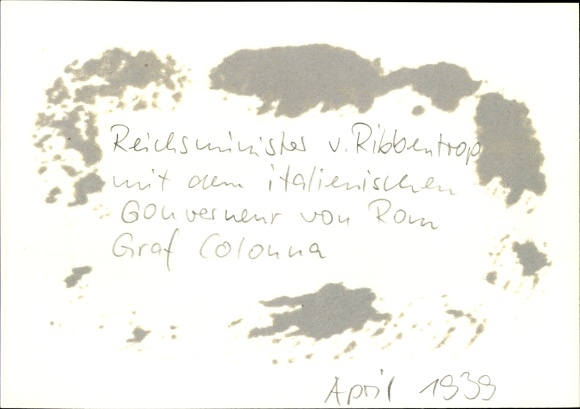 Reichsminister v. Ribbentrop
mit dem italienischen
Gouverneur von Rom
Graf Colonna
April 1939